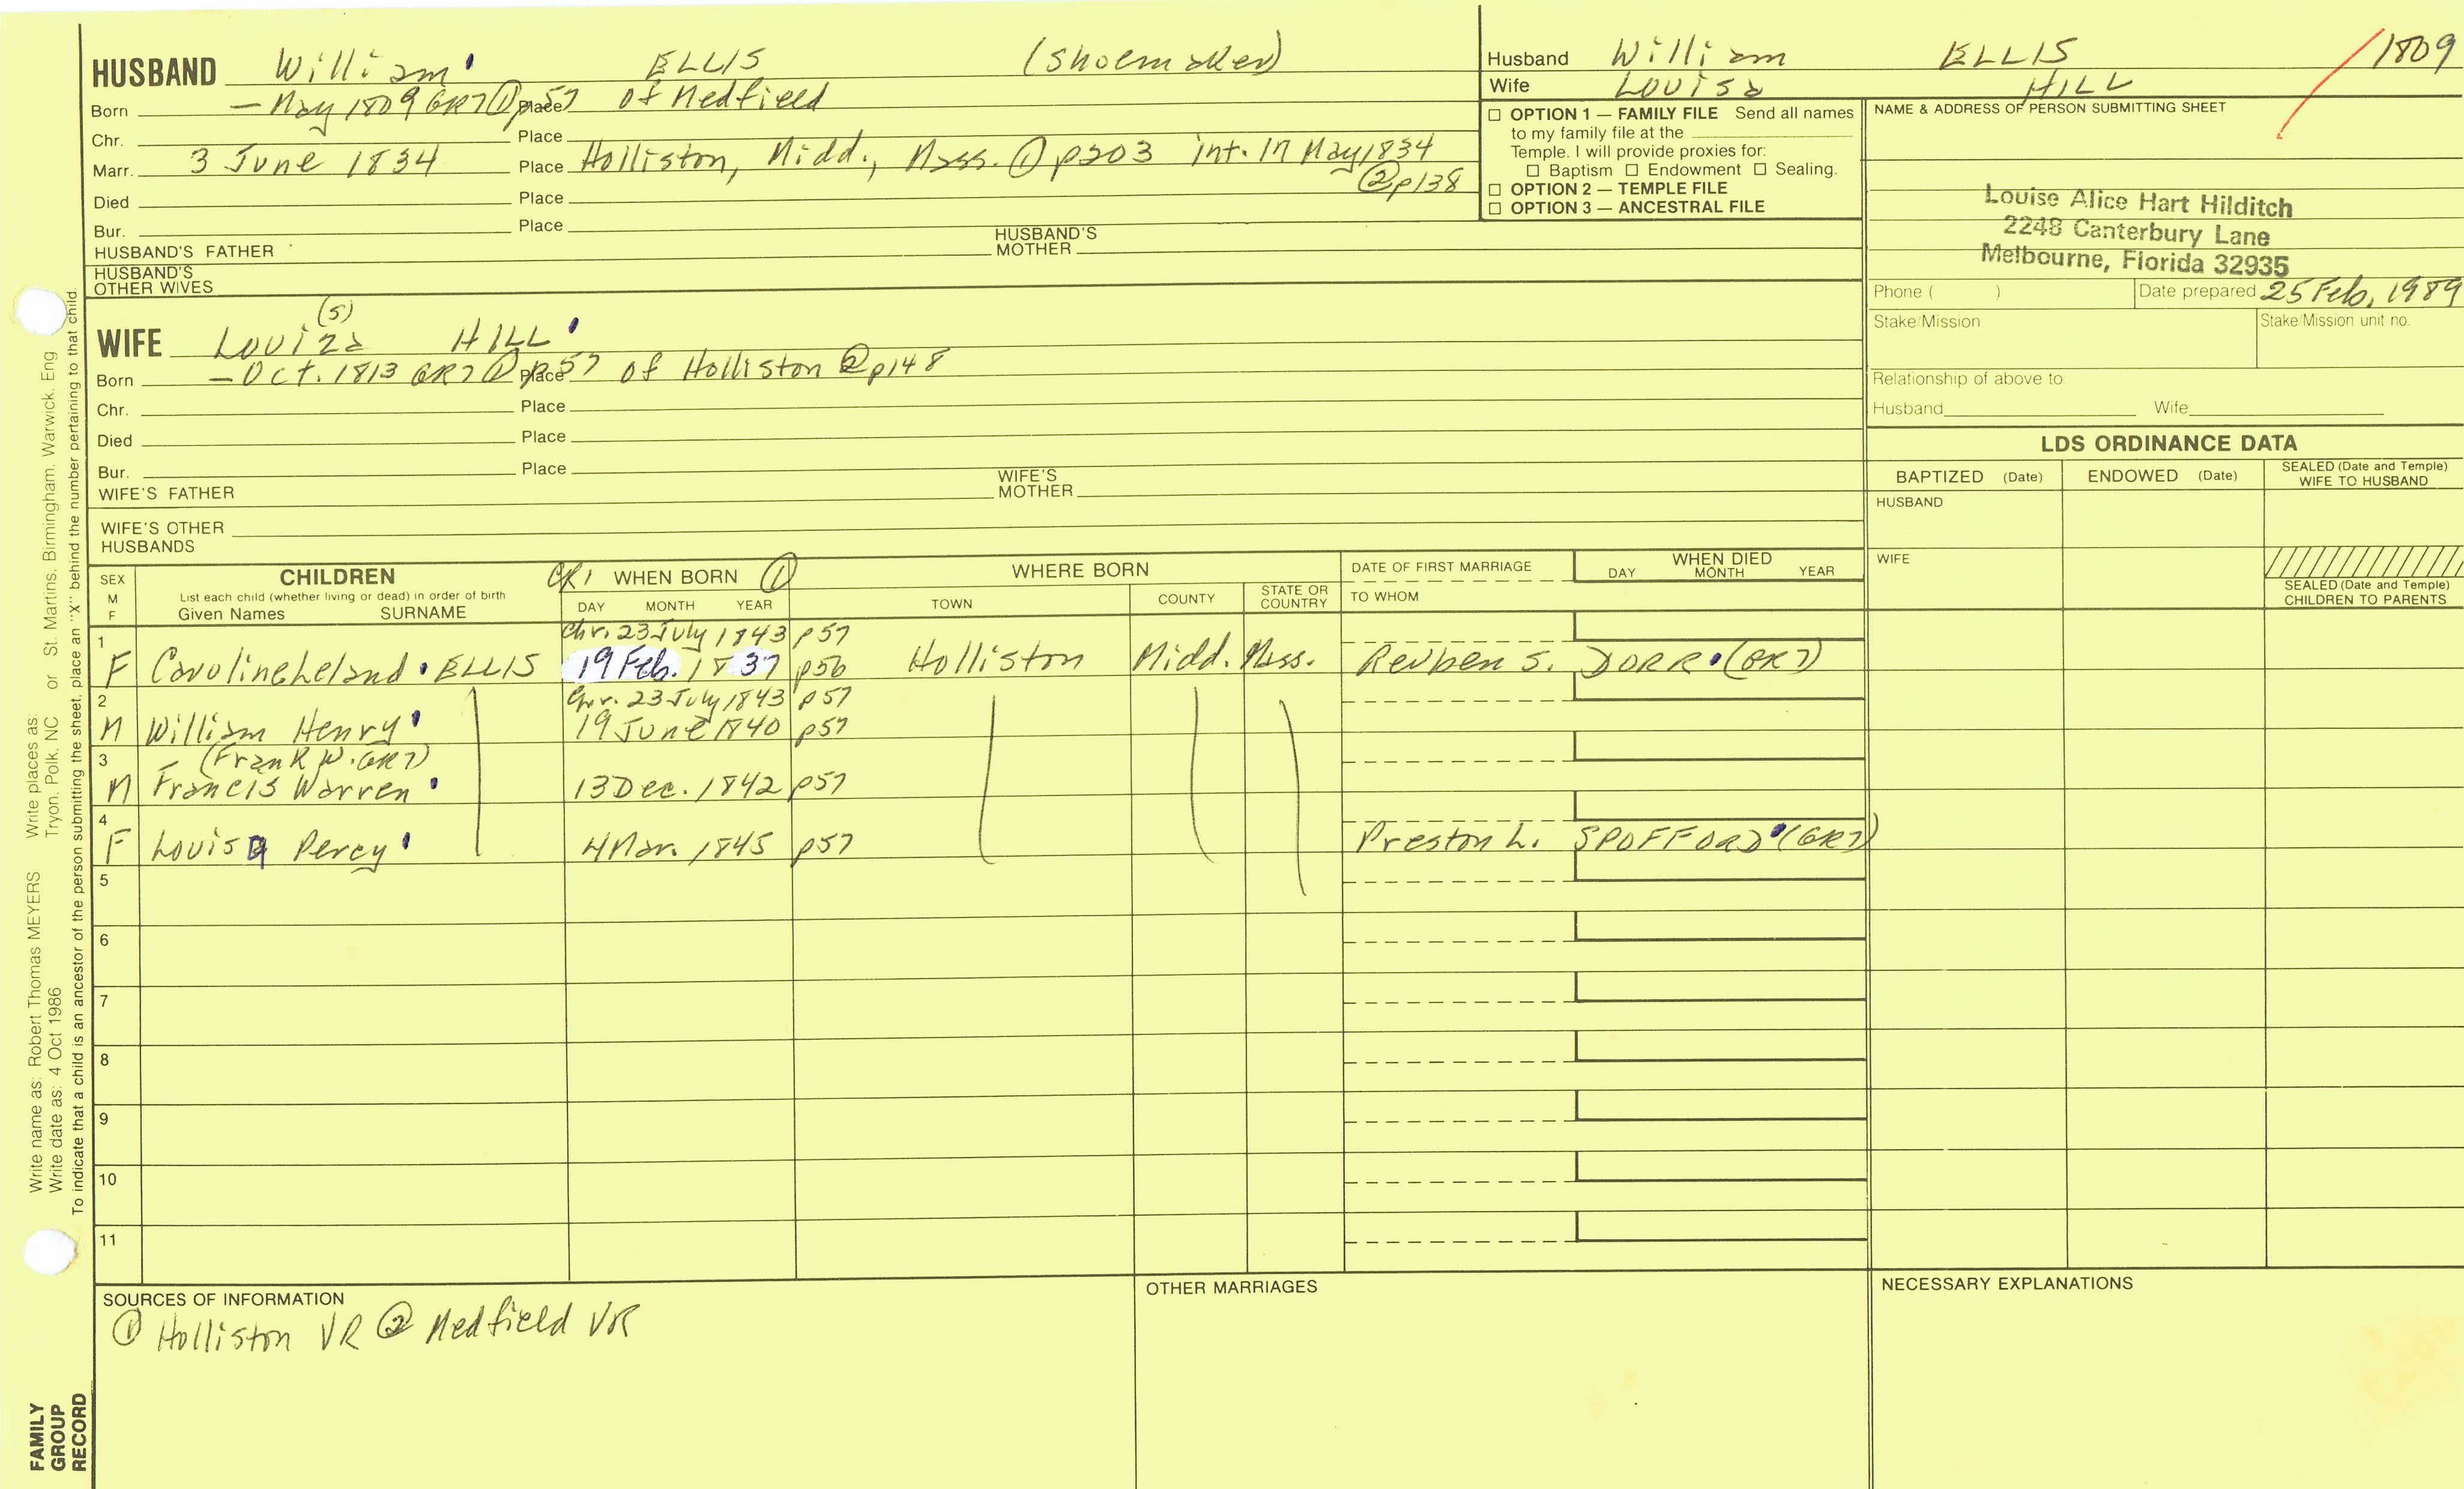 HUSBAND William ELLIS (shoemaker)
Born - May 1809 GR7 ① p57 Place of Medfield
Chr. Place
Marr. 3 June 1834 Place Holliston, Midd., Mass. ① p203 int. 17 May 1834
② p138
Died Place
Bur. Place
HUSBAND'S FATHER HUSBAND'S MOTHER
HUSBAND'S OTHER WIVES
(s)
WIFE Louiza HILL
Born - Oct. 1813 GR7 ① p57 Place of Holliston ② p148
Chr. Place
Died Place
Bur. Place
WIFE'S FATHER WIFE'S MOTHER
WIFE'S OTHER HUSBANDS
Husband William ELLIS 1809
Wife Louisa HILL
☐ OPTION 1 — FAMILY FILE Send all names
to my family file at the
Temple. I will provide proxies for:
☐ Baptism ☐ Endowment ☐ Sealing.
☐ OPTION 2 — TEMPLE FILE
☐ OPTION 3 — ANCESTRAL FILE
NAME & ADDRESS OF PERSON SUBMITTING SHEET
Louise Alice Hart Hilditch
2248 Canterbury Lane
Melbourne, Florida 32935
Phone ( ) Date prepared 25 Feb, 1989
Stake/Mission Stake/Mission unit no.
Relationship of above to
Husband Wife
LDS ORDINANCE DATA
BAPTIZED (Date) ENDOWED (Date) SEALED (Date and Temple) WIFE TO HUSBAND
HUSBAND
WIFE
SEALED (Date and Temple) CHILDREN TO PARENTS
SEX M F
CHILDREN
List each child (whether living or dead) in order of birth
Given Names SURNAME
GR1 WHEN BORN ①
DAY MONTH YEAR
WHERE BORN
TOWN COUNTY STATE OR COUNTRY
DATE OF FIRST MARRIAGE
TO WHOM
WHEN DIED
DAY MONTH YEAR
1 Chr. 23 July 1843 p57
F Caroline Leland ELLIS 19 Feb. 1837 p56 Holliston Midd. Mass. Reuben S. DORR (GR7)
2 Chr. 23 July 1843 p57
M William Henry 19 June 1840 p57
3 (Frank W. GR7)
M Francis Warren 13 Dec. 1842 p57
4
F Louisa Percy 4 Mar. 1845 p57 Preston L. SPOFFORD (GR7)
5
6
7
8
9
10
11
SOURCES OF INFORMATION
① Holliston VR ② Medfield VR
OTHER MARRIAGES
NECESSARY EXPLANATIONS
Write name as: Robert Thomas MEYERS Write places as: Tryon, Polk, NC or St. Martins, Birmingham, Warwick, Eng
Write date as: 4 Oct 1986
To indicate that a child is an ancestor of the person submitting the sheet, place an "X" behind the number pertaining to that child.
FAMILY
GROUP
RECORD